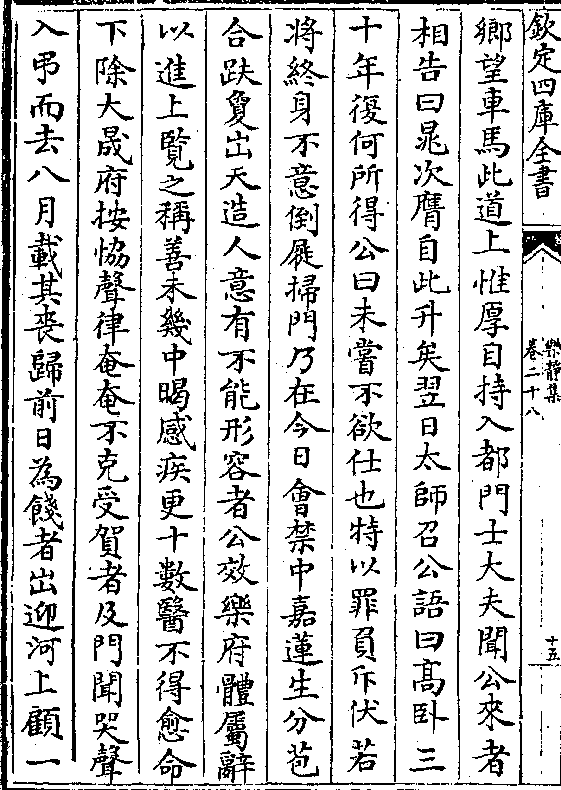 欽定四庫全書
樂靜集
卷二十八
十五
鄉望車馬此道上惟厚自持入都門士大夫聞公來者
相告曰晁次膺自此升矣翌日太師召公語曰髙卧三
十年復何所得公曰未嘗不欲仕也特以罪負斥伏若
將終身不意倒屣掃門乃在今日會禁中嘉蓮生分苞
合趺敻出天造人意有不能形容者公效樂府體屬辭
以進上覧之稱善未幾中暍感疾更十數醫不得愈命
下除大晟府按恊聲律奄奄不克受賀者及門聞哭聲
入弔而去八月載其喪歸前日為餞者出迎河上顧一